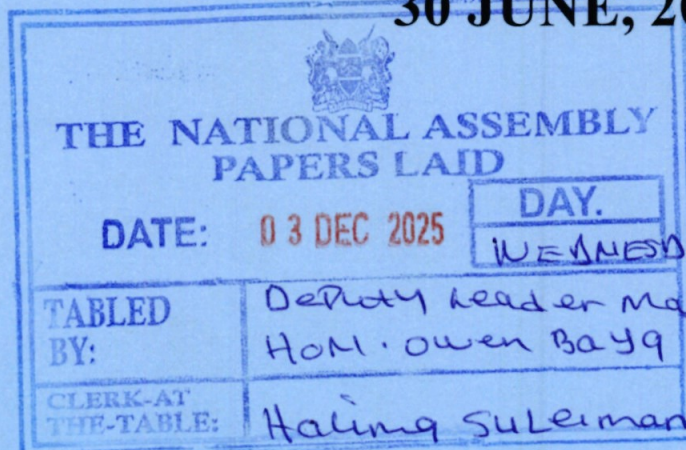 30 JUNE, 20
THE NATIONAL ASSEMBLY
PAPERS LAID
DATE: 03 DEC 2025
DAY.
WEDNESD
TABLED BY:
Deputy Leader Ma
Hon. Owen Baya
CLERK-AT THE-TABLE:
Halima Suleiman